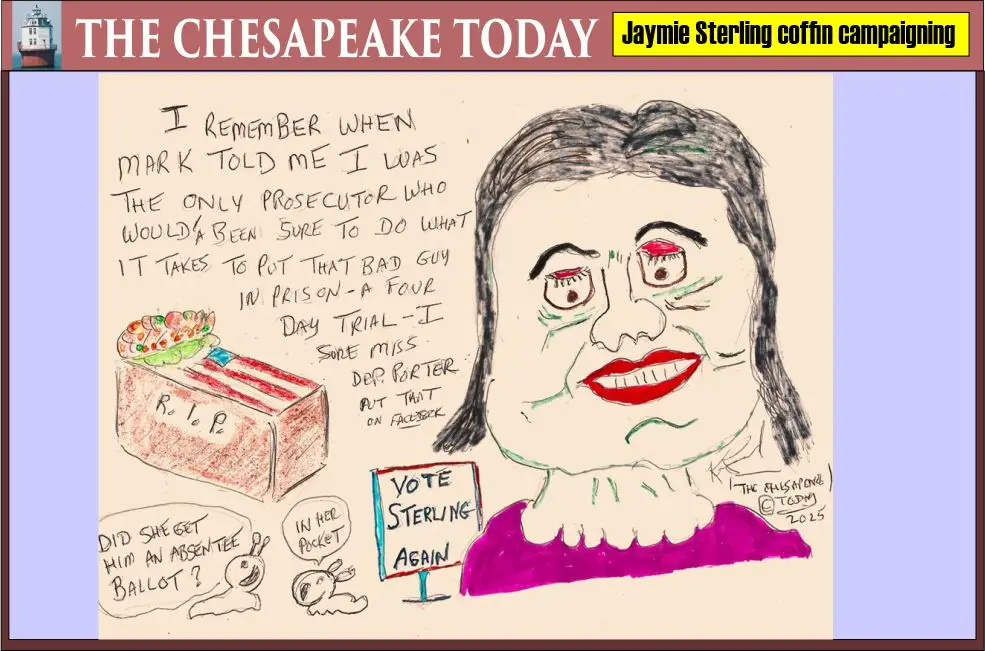 THE CHESAPEAKE TODAY
Jaymie Sterling coffin campaigning
I REMEMBER WHEN
MARK TOLD ME I WAS
THE ONLY PROSECUTOR WHO
WOULD'A BEEN SURE TO DO WHAT
IT TAKES TO PUT THAT BAD GUY
IN PRISON - A FOUR
DAY TRIAL - I
SURE MISS
DEP. PORTER
PUT THAT
ON FACEBOOK
R.I.P.
VOTE
STERLING
AGAIN
DID SHE GET
HIM AN ABSENTEE
BALLOT?
IN HER
POCKET
THE CHESAPEAKE
© TODAY
2025